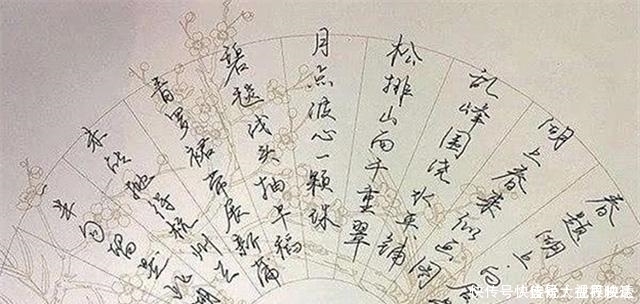 春题湖上 白
湖上春来似画图
乱峰围绕水平铺
松排山面千重翠
月点波心一颗珠
碧毯线头抽早稻
青罗裙带展新蒲
未能抛得杭州去
半勾留是此湖
快传号